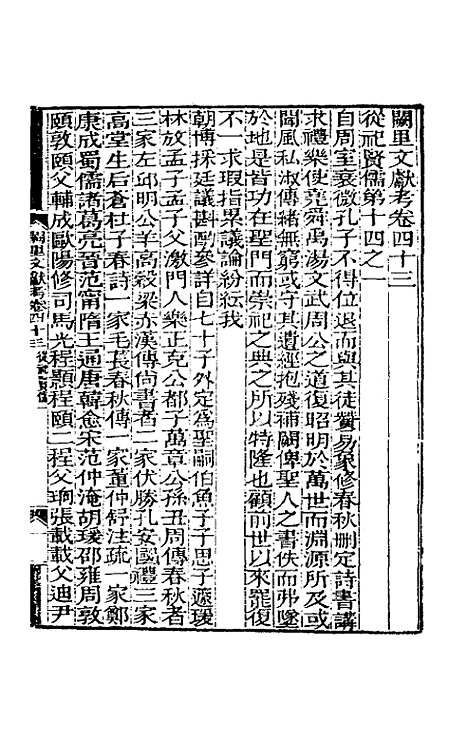 闕里文獻考卷四十三
從祀賢儒第十四之一
自周室衰微孔子不得位退而與其徒贊易象修春秋刪定詩書講
求禮樂使堯舜禹湯文武周公之道復昭明於萬世而淵源所及或
聞風私淑傳緒無窮或守其遺經抱殘補闕俾聖人之書佚而弗墜
於地是皆功在聖門而崇祀之典之所以特隆也顧前世以來罷復
不一求瑕指纇議論紛紜我
朝博採廷議斟酌參詳自七十子外定為聖嗣伯魚子子思子蘧瑗
林放孟子孟子父激門人樂正克公都子萬章公孫丑周傳春秋者
三家左邱明公羊高穀梁赤漢傳尙書者二家伏勝孔安國禮三家
高堂生后倉杜子春詩一家毛萇春秋傳一家董仲舒注疏一家鄭
康成蜀儒諸葛亮晉范甯隋王通唐韓愈宋范仲淹胡瑗邵雍周敦
頤敦頤父輔成歐陽修司馬光程顥程頤二程父珦張載載父迪尹
闕里文獻考卷四十三